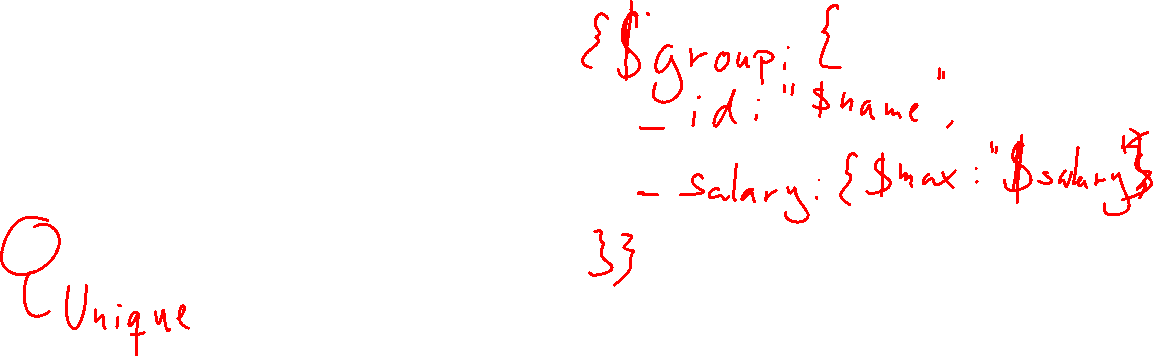 {$group: {
_id: "$name",
_salary: {$max: "$salary"}
}}
Unique